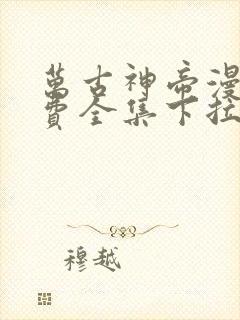 萬古神帝漫
費全集下拉
穆越